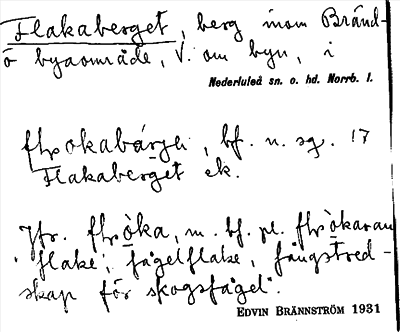 Flakaberget, berg inom Bränd-
ö byaområde, V. om byn, i
Nederluleå sn. o. hd. Norrb. l.
flɷokabárgə, bf. n. sg. 17
Flakaberget ek.
Jfr. flɷòka, m. bf. pl. flɷòkaran
'flake', fågelflake, fångstred-
skap för skogsfågel".
EDVIN BRÄNNSTRÖM 1931